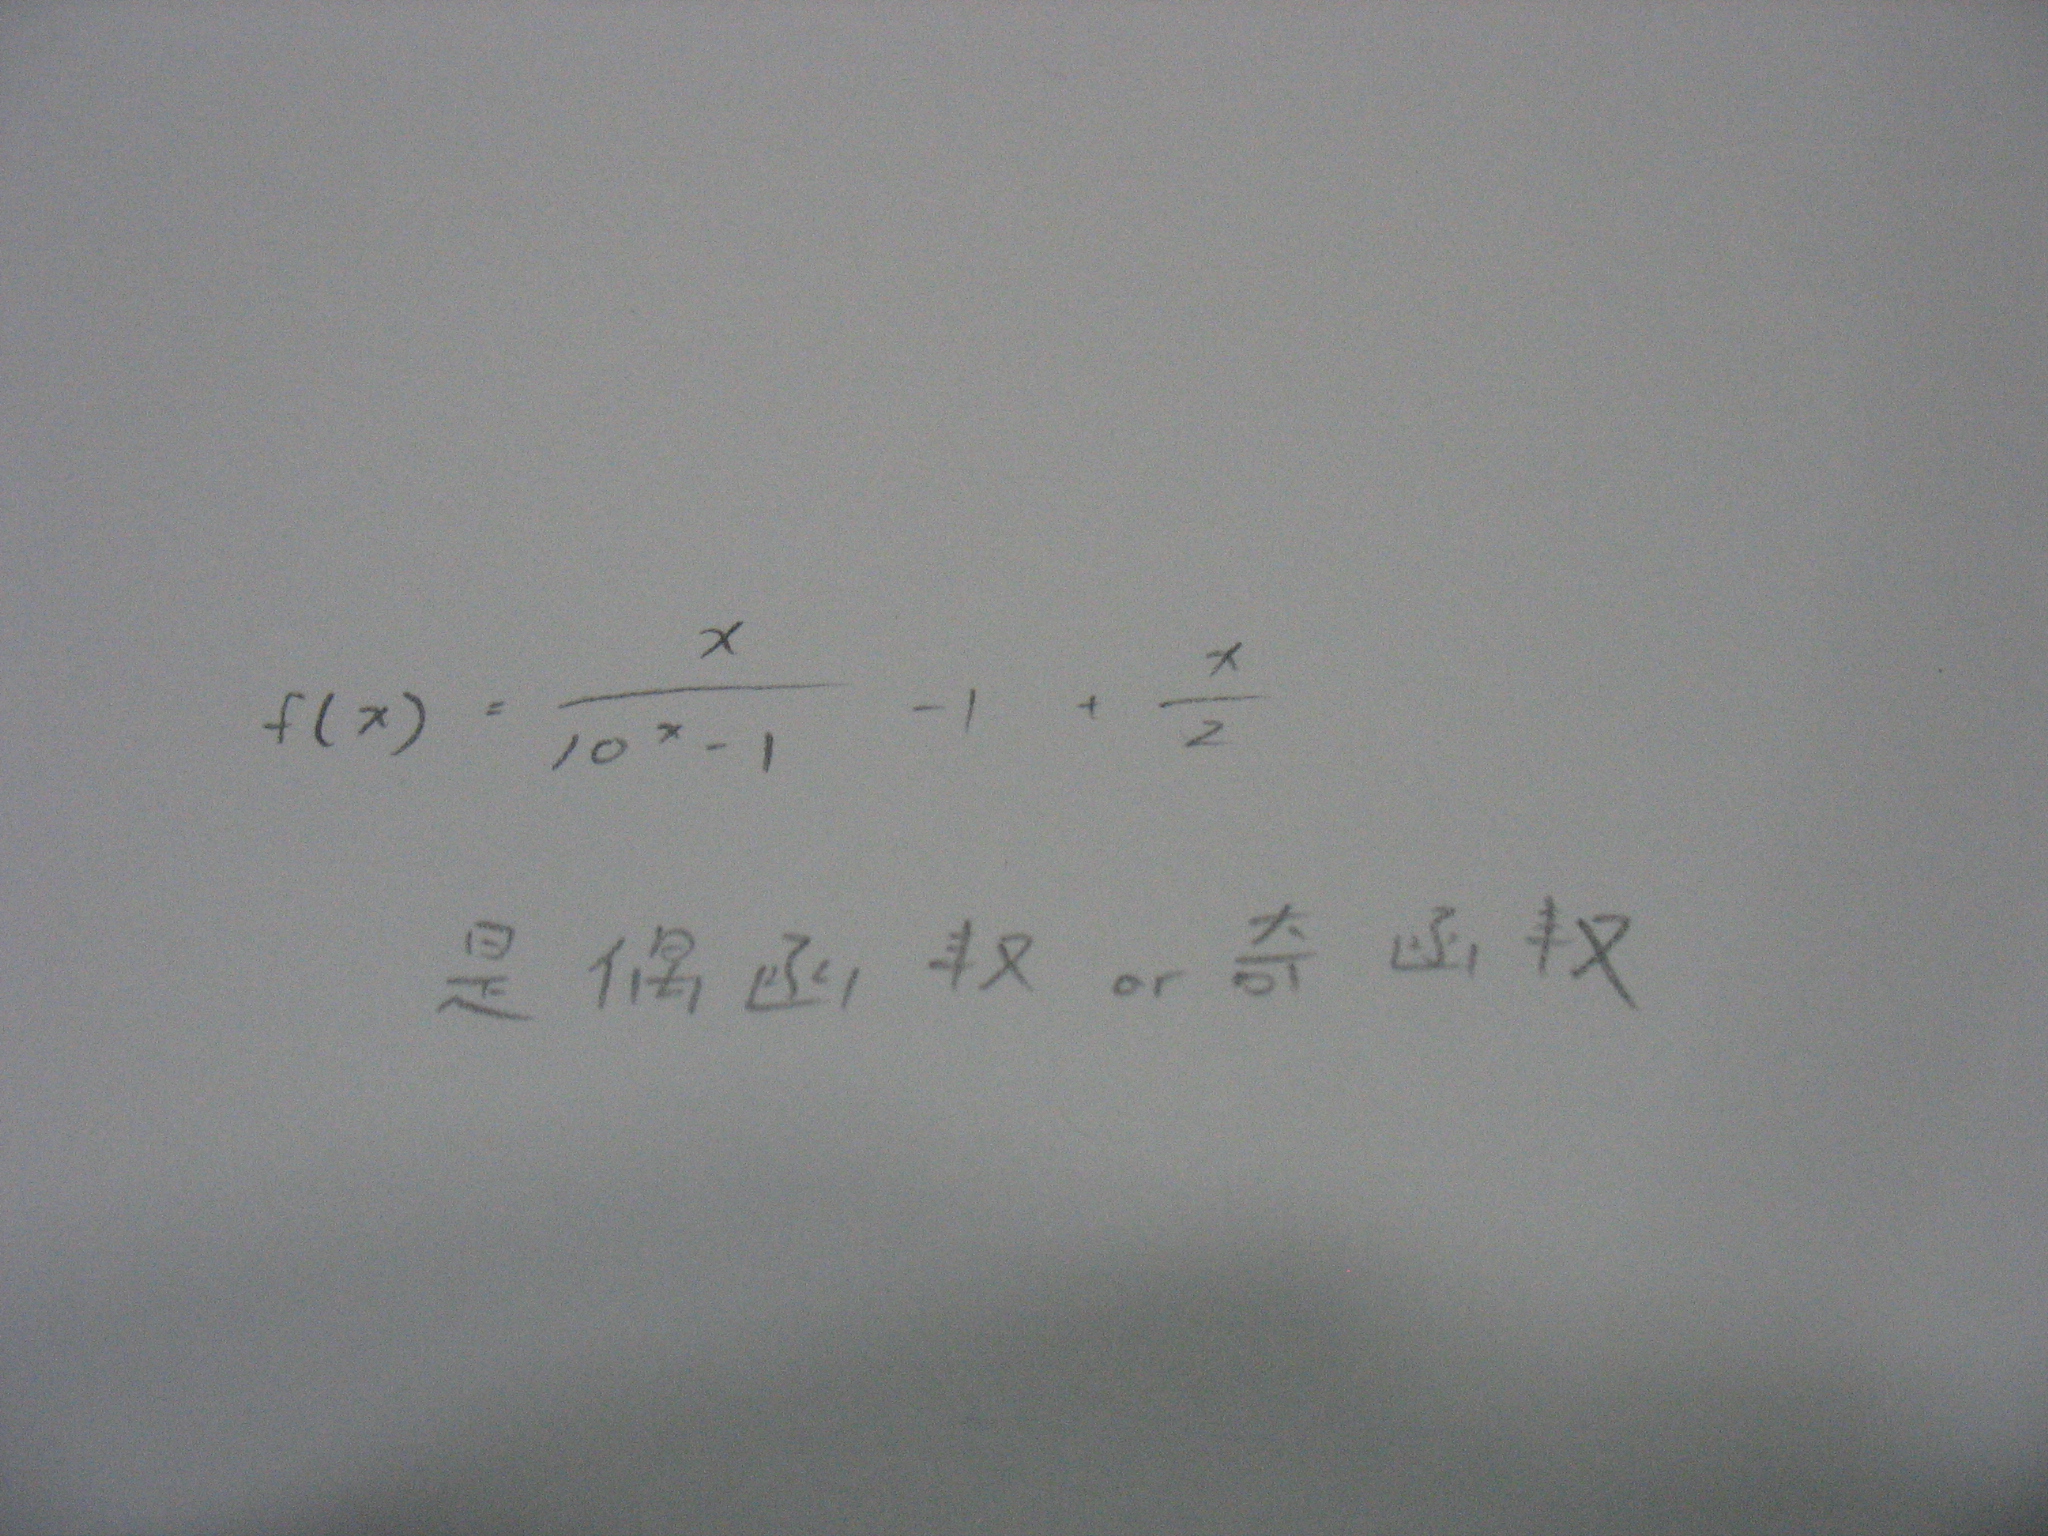 f(x) = x/(10^x - 1) - 1 + x/2
是偶函数 or 奇函数